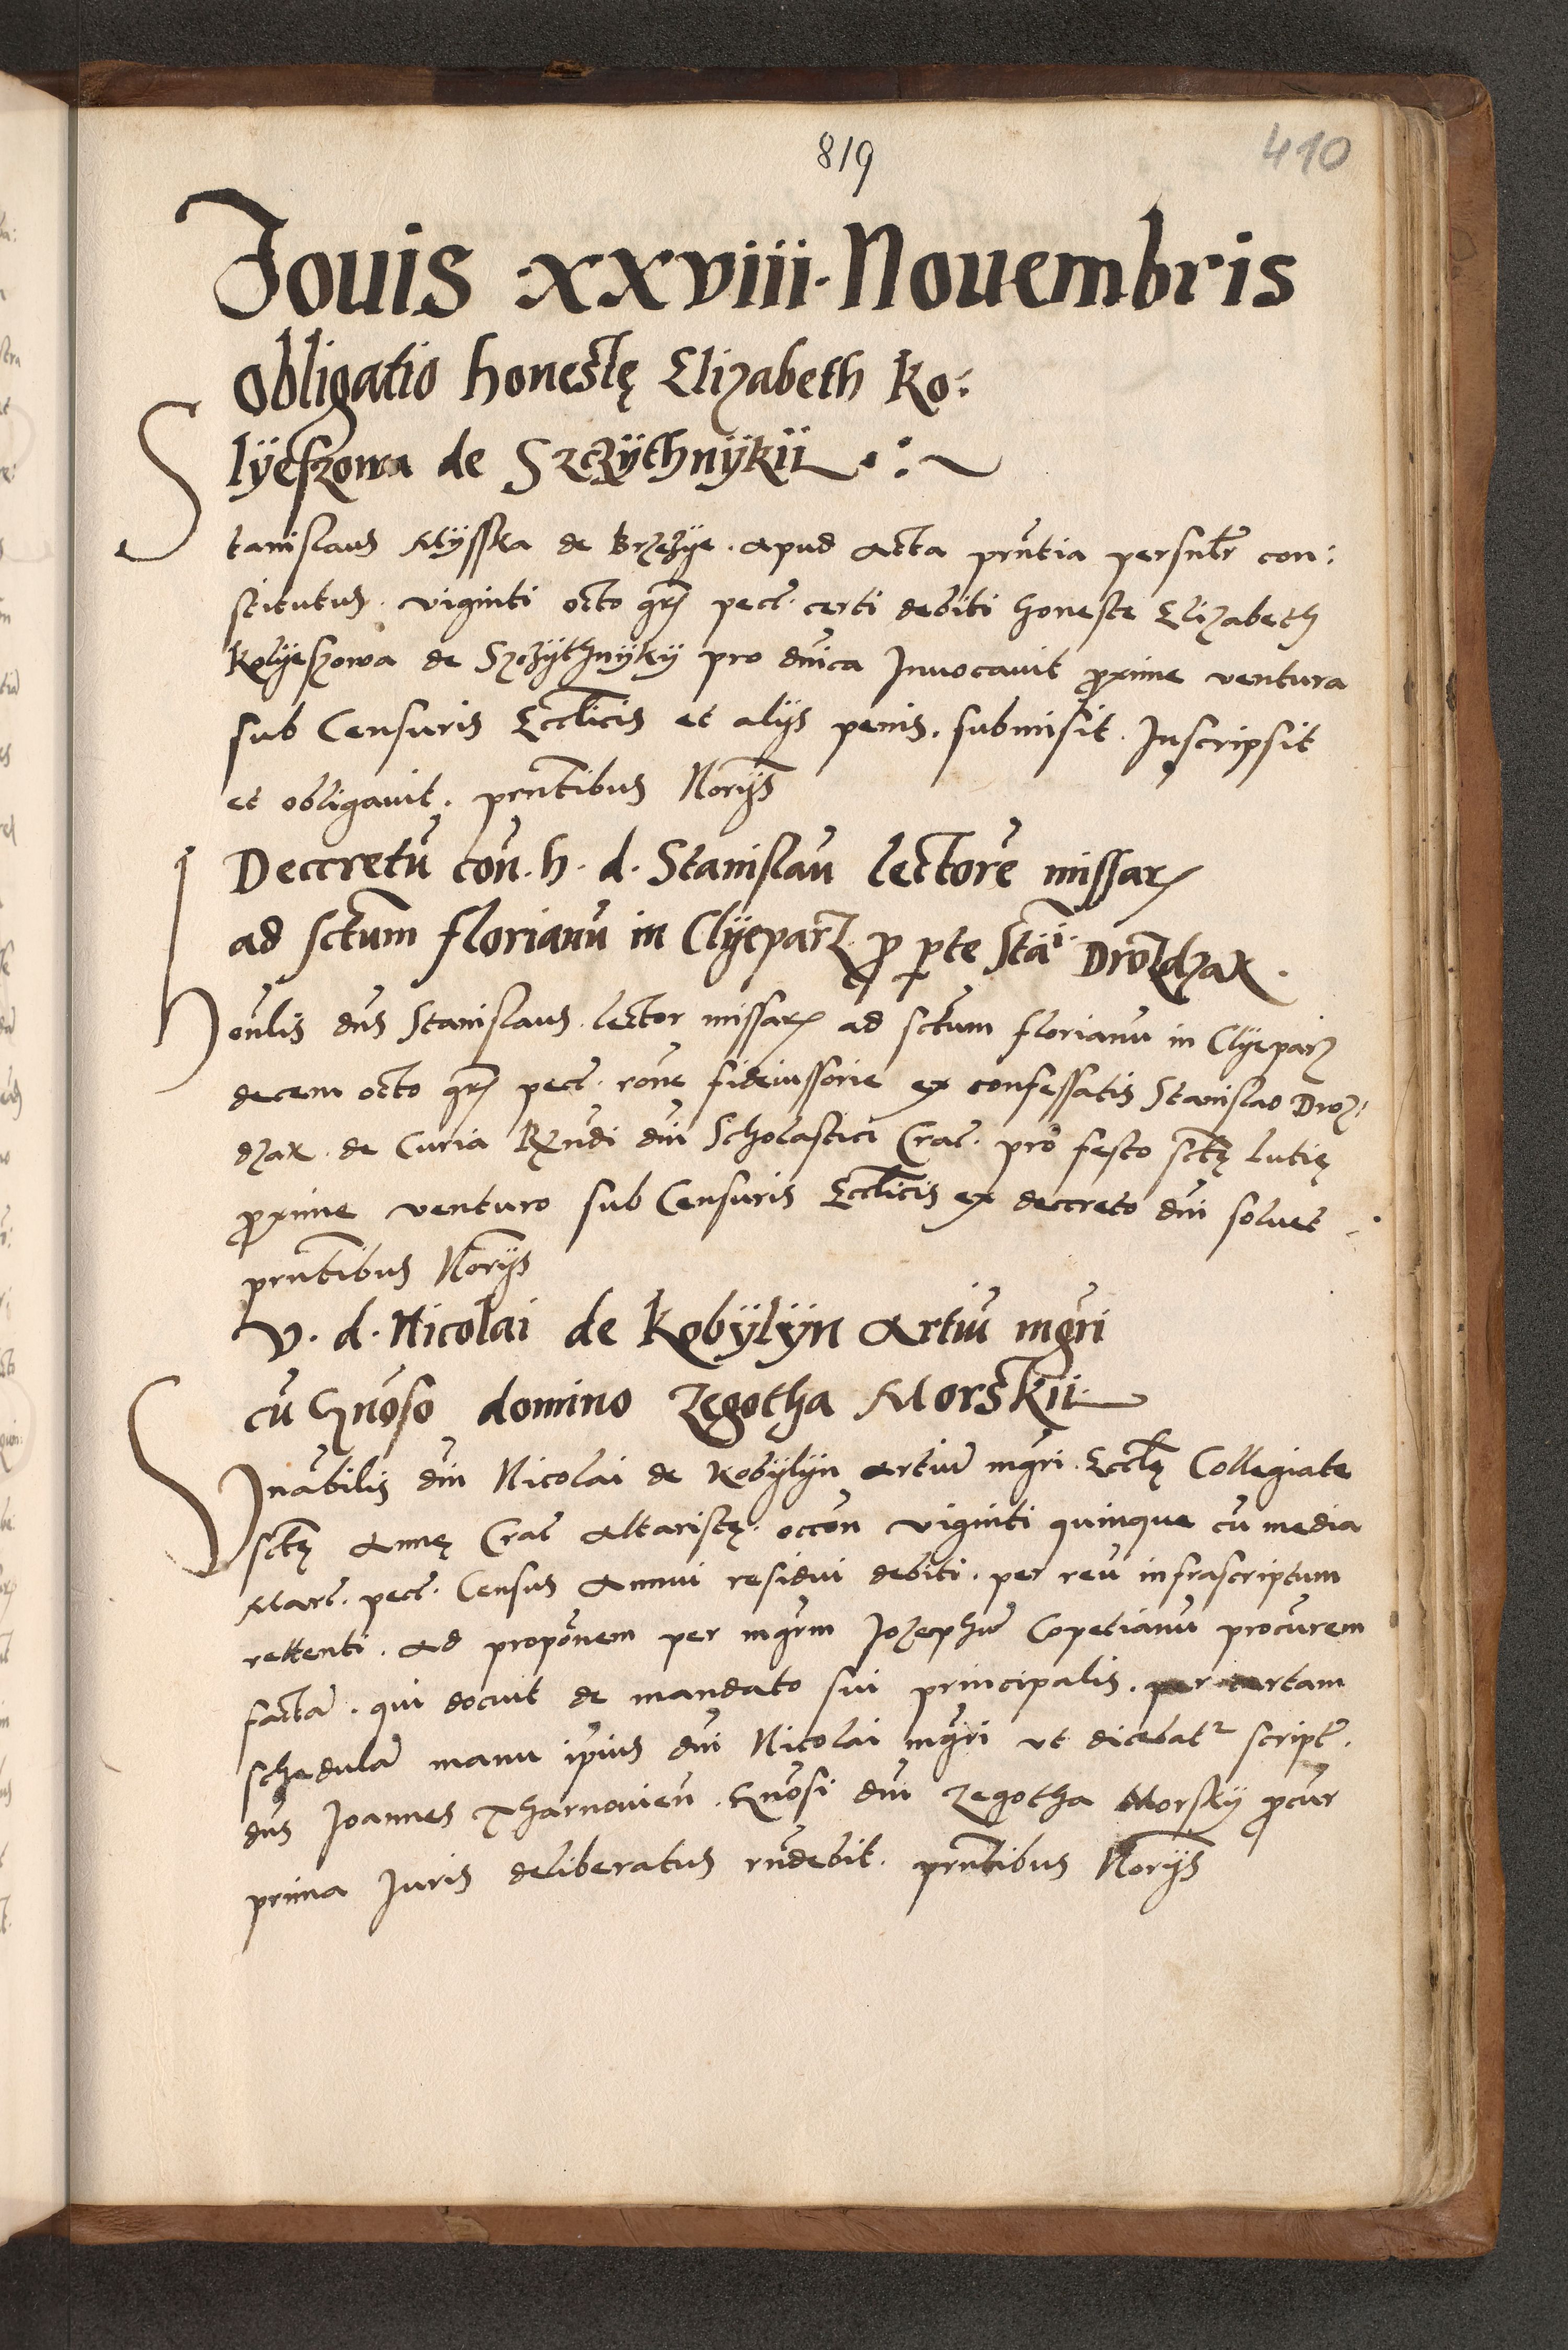 819
410
Jouis xxviii. Nouembris
Obligatio honestę Elizabeth Ko:
lÿeszowa de SzczÿthnÿKii
Stanislaus Mÿsska de Brzezÿe. apud acta pñtia persnlr̃ con:
stitutus. viginti octo gr̃ pecc̃. certi debiti honeste Elizabeth
Kolÿeszowa de Szczÿthnÿkÿ pro dñica Inuocauit ꝓxime ventura
sub Censuris Eccl̃icis et alijs penis. submisit. Inscripsit
et obligauit. pr̃ntibus Nor̃ijs
Decretũ coñ. h. d. Stanislaũ lectorẽ missaꝝ
ad sctum florianũ in Clÿeparz ꝓ ꝑte Stãi. Drozdzak.
Honlis dñs Stanislaus. lector missaꝝ ad sctum florianũ in Clÿeparz
decem octo gr̃ pecc̃. rõne fideiussorie ex confessatis Stanislao Droz:
dzak. de Curia Rẽndi dñi Scholastici Crac̃. pro festo sctę Lutię
ꝓxime venturo sub Censuris Eccl̃icis ex decreto dñi soluet
pr̃ntibus Nor̃ijs
V. d. Nicolai de Kobÿlÿn artiũ mgr̃i
cũ Gnõso domino Zegotha MorsKii
Vnãbilis dñi Nicolai de Kobÿlÿn artiũ mgr̃i. Eccl̃ę Collegiate
sctę Annę Crac̃ altaristę. occõn viginti quinque cũ media
Marc̃. pecc̃. Census annui residui debiti. per reũ infrascriptum
rettenti. ad propõnem per mgr̃m Jozephũ Copetianũ procũrem
factã. qui docuit de mandato sui principalis. per certam
schedulã manu ip̃ius dñi Nicolai mgr̃i vt dicebatr script̃.
dñs Joannes Tharnouieñ. Gnõsi dñi Zegotha Morskÿ ꝓcur
prima Juris deliberatus rñdebit. pr̃ntibus Nor̃ijs